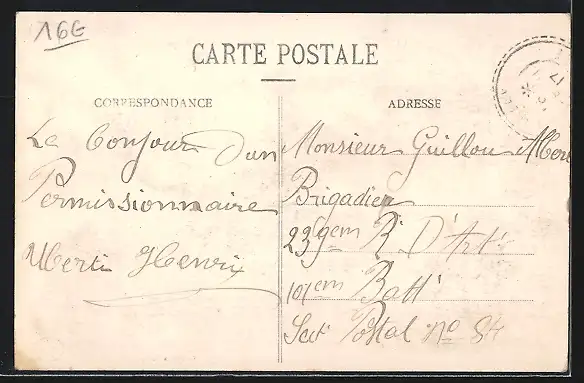 16E
CARTE POSTALE
CORRESPONDANCE
Le Bonjour d'un
Permissionnaire
Uberti Henri
ADRESSE
Monsieur Guillou Albert
Brigadier
239em R. D'Art
101em Batt
Sect Postal No 84